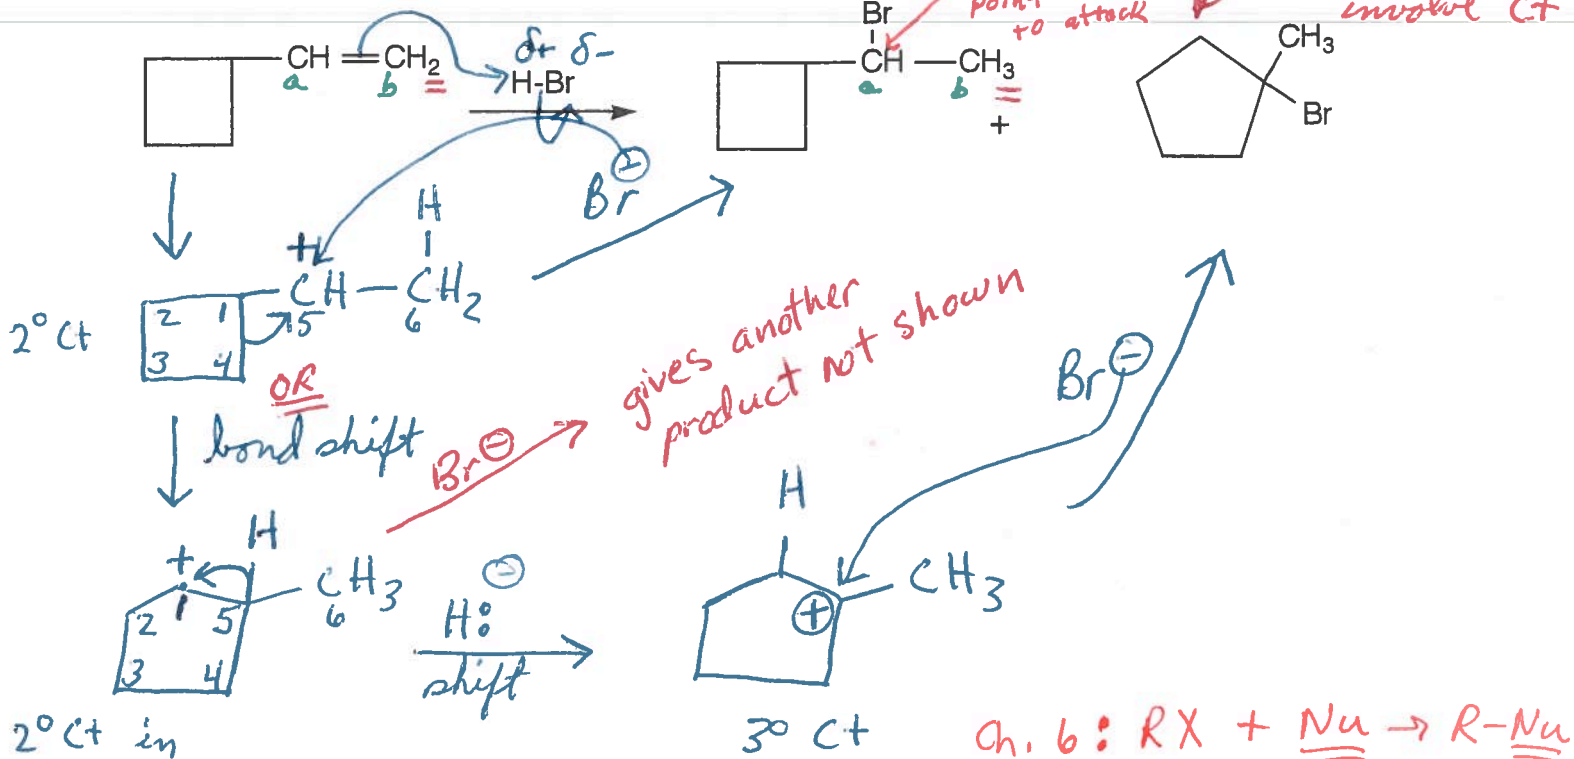 Br
point
to attack
involve C+
CH=CH2
a b
δ+ δ-
H-Br
CH—CH3
a b
+
CH3
Br
Br ⊖
H
+
CH—CH2
5 6
2 1
3 4
2° C+
OR
bond shift
Br⊖
gives another
product not shown
Br⊖
H
+
CH3
6
1
2 5
3 4
H:⊖
shift
H
⊕
CH3
2° C+ in
3° C+
Ch. 6: RX + Nu → R-Nu